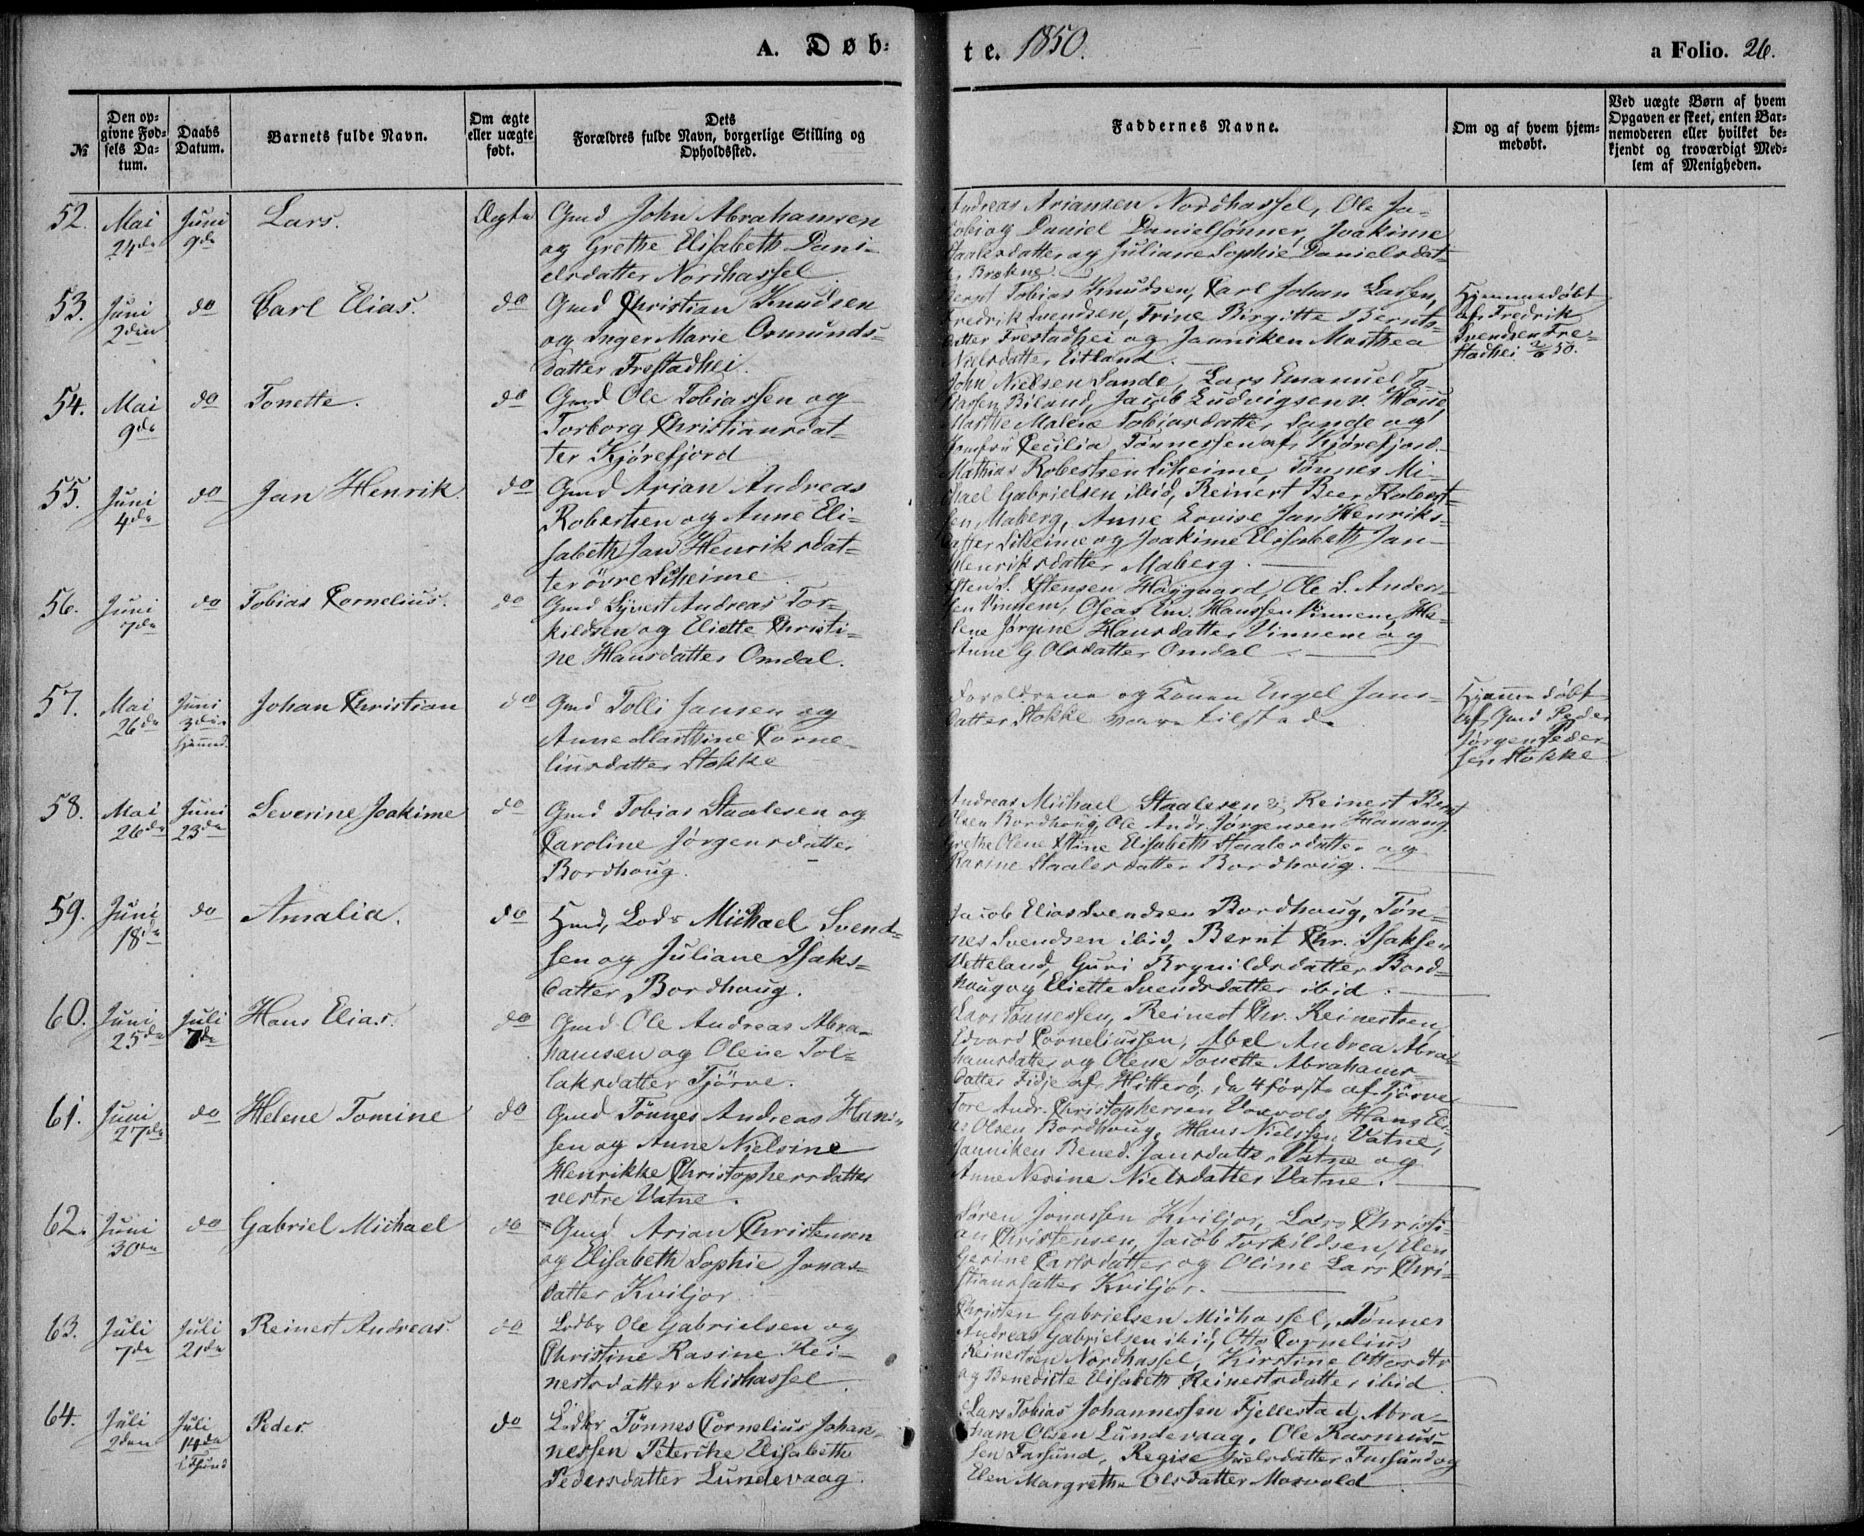 A. Døb-
te. 1850.
a Folio. 26.
№
Den op-
givne Fød-
sels Da-
tum.
Daabs
Datum.
Barnets fulde Navn.
Om ægte
eller uægte
født.
Dets
Forældres fulde Navn, borgerlige Stilling og
Opholdssted.
Faddernes Navne.
Om og af hvem hjem-
medøbt.
Ved uægte Børn af hvem
Opgaven er skeet, enten Bar-
nemoderen eller hvilket be-
kjendt og troværdigt Med-
lem af Menigheden.
52.
Mai
24de
Juni
9de
Lars.
Ægte
Gmd John Abrahamsen
og Grethe Elisabeth Dani-
elsdatter Nordhassel
Andreas Ariansen Nordhassel, Ole Ja-
cob og Daniel Danielsønner, Joakime
Staalesdatter og Juliane Sophie Danielsdat-
ter Brekne.
53.
Juni
2den
do
Carl Elias.
do
Gmd Christian Knudsen
og Inger Marie Osmunds-
datter Frestadhei.
Bernt Tobias Knudsen, Carl Johan Larsen,
Fredrik Svendsen, Trine Birgitte Bernts-
datter Frestadhei og Janniken Marthea
Nielsdatter Eitland.
Hjemmedøbt
af Fredrik
Svendsen Fre-
stadhei 2/6 50.
54.
Mai
9de
do
Tonette.
do
Gmd Ole Tobiassen og
Torborg Christiansdat-
ter Kjørefjord
John Nielsen Sande, Lars Emanuel To-
biassen Biland, Jacob Ludvigsen v. Houe,
Marthe Malene Tobiasdatter Sande og
Jomfru Cecilia Tønnessen af Kjørefjord.
55.
Juni
4de
do
Jan Henrik.
do
Gmd Arian Andreas
Robertsen og Anne Eli-
sabeth Jan Henriksdat-
ter øvre Skeime
Mathias Robertsen Skeime, Tønnes Mi-
chael Gabrielsen ibid, Reinert Beer Robert-
sen Maberg, Anne Lovise Jan Henriks-
datter Skeime og Joakime Elisabeth Jan
Henriksdatter Maberg.
56.
Juni
do
Tobias Cornelius.
do
Gmd Syvert Andreas Tor-
kildsen og Eliette Christi-
ne Hansdatter Omdal.
Osten S. Ostensen Haygaard, Ole S. Ander-
sen Vinnem, Oseas Em. Hanssen Vinnem, He-
lene Jørgine Hansdatter Vinnem og
Anne G Olsdatter Omdal
57.
Mai
26de
Juni
3die
hjemmed.
Johan Christian
do
Gmd Tolli Jansen og
Anne Marthine Corne-
liusdatter Stokke
Forældrene og Konen Engel Jans-
datter Stokke vare tilstede
Hjemmedøbt
af Gmd Peder
Jørgen Peder-
sen Stokke
58.
Mai
26de
Juni
23de
Severine Joakime
do
Gmd Tobias Staalesen og
Caroline Jørgensdatter
Bordhoug.
Andreas Michael Staalesen & Reinert Bernt
Olsen Bordhoug, Ole Andr. Jørgensen Hanang,
Grethe Olene Stine Elisabeth Staalesdatter og
Rasine Staalesdatter Bordhoug.
59.
Juni
18de
do
Amalia.
do
Hmd, Lods Michael Svend-
sen og Juliane Isaks-
datter Bordhoug.
Jacob Elias Svendsen Bordhoug, Tøn-
nes Svendsen ibid, Bernt Chr. Isaksen
Vetteland, Guri Brynildsdatter Bord-
houg og Eliette Svendsdatter ibid.
60.
Juni
25de
Juli
7de
Hans Elias.
do
Gmd Ole Andreas Abra-
hamsen og Olene Tol-
laksdatter Tjørve.
Lars Tønnessen, Reinert Chr. Reinertsen,
Edvard Corneliussen, Abel Andrea Abra-
hamsdatter og Olene Tonette Abrahams-
datter Fidje af Hitterø, de 4 første af Tjørve
61.
Juni
27de
do
Helene Tomine
do
Gmd Tønnes Andreas Han-
sen og Anne Nielsine
Henrikke Christophersdatter
vestre Vatne.
Tore Andr. Christophersen Vaavold, Hans Eli-
as Olsen Bordhoug, Hans Nielsen Vatne,
Janniken Bened. Jansdatter Vatne og
Anne Nesine Nielsdatter Vatne.
62.
Juni
30te
do
Gabriel Michael
do
Gmd Arian Christensen
og Elisabeth Sophie Jonas-
datter Kviljor
Søren Jonassen Kviljor, Lars Christi-
an Christensen, Jacob Torkildsen, Elen
Gerine Carlsdatter og Oline Lars Chri-
stiansdatter Kviljor.
63.
Juli
7de
Juli
21de
Reinert Andreas.
do
Ledbr Ole Gabrielsen og
Christine Rasine Rei-
nertsdatter Midhassel
Christen Gabrielsen Midhassel, Tønnes
Andreas Gabrielsen ibid, Otto Cornelius
Reinertsen Nordhassel, Kirstine Ottersdtr
og Benedicte Elisabeth Reinertsdatter ibid
64.
Juli
2den
Juli
14de
i Fsund
Peder
do
Ledbr Tønnes Cornelius Johan-
nessen Peterche Elisabeth
Pedersdatter Lundevaag.
Lars Tobias Johannessen Fjellestad, Abra-
ham Olsen Lundevaag, Ole Rasmus-
sen Farsund, Regise Juelsdatter Farsund og
Elen Margrethe Olsdatter Mosvold